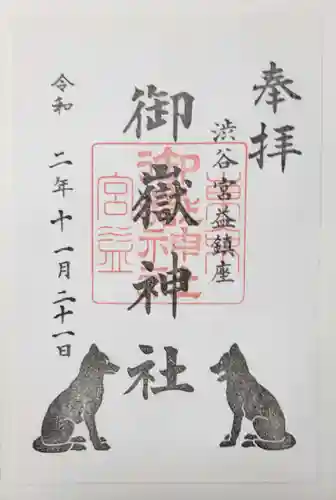 奉拝
渋谷宮益鎮座
御嶽神社
令和二年十一月二十一日
東京
御嶽神社
宮益